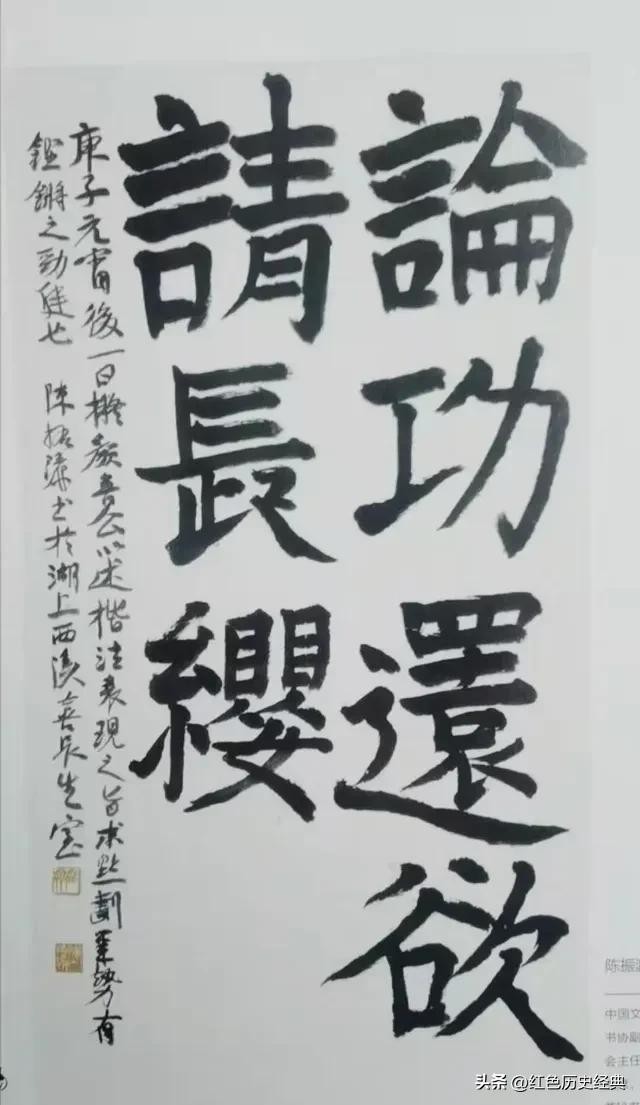 論功還欲
請長纓
庚子元宵後一日擬顏魯公以述楷法表現之旨求點劃業勢有
鏗鏘之勁健也 陳振濂書於湖上西溪喜長生室
陈振濂
中国文
书协副
会主任
头条 @红色历史经典